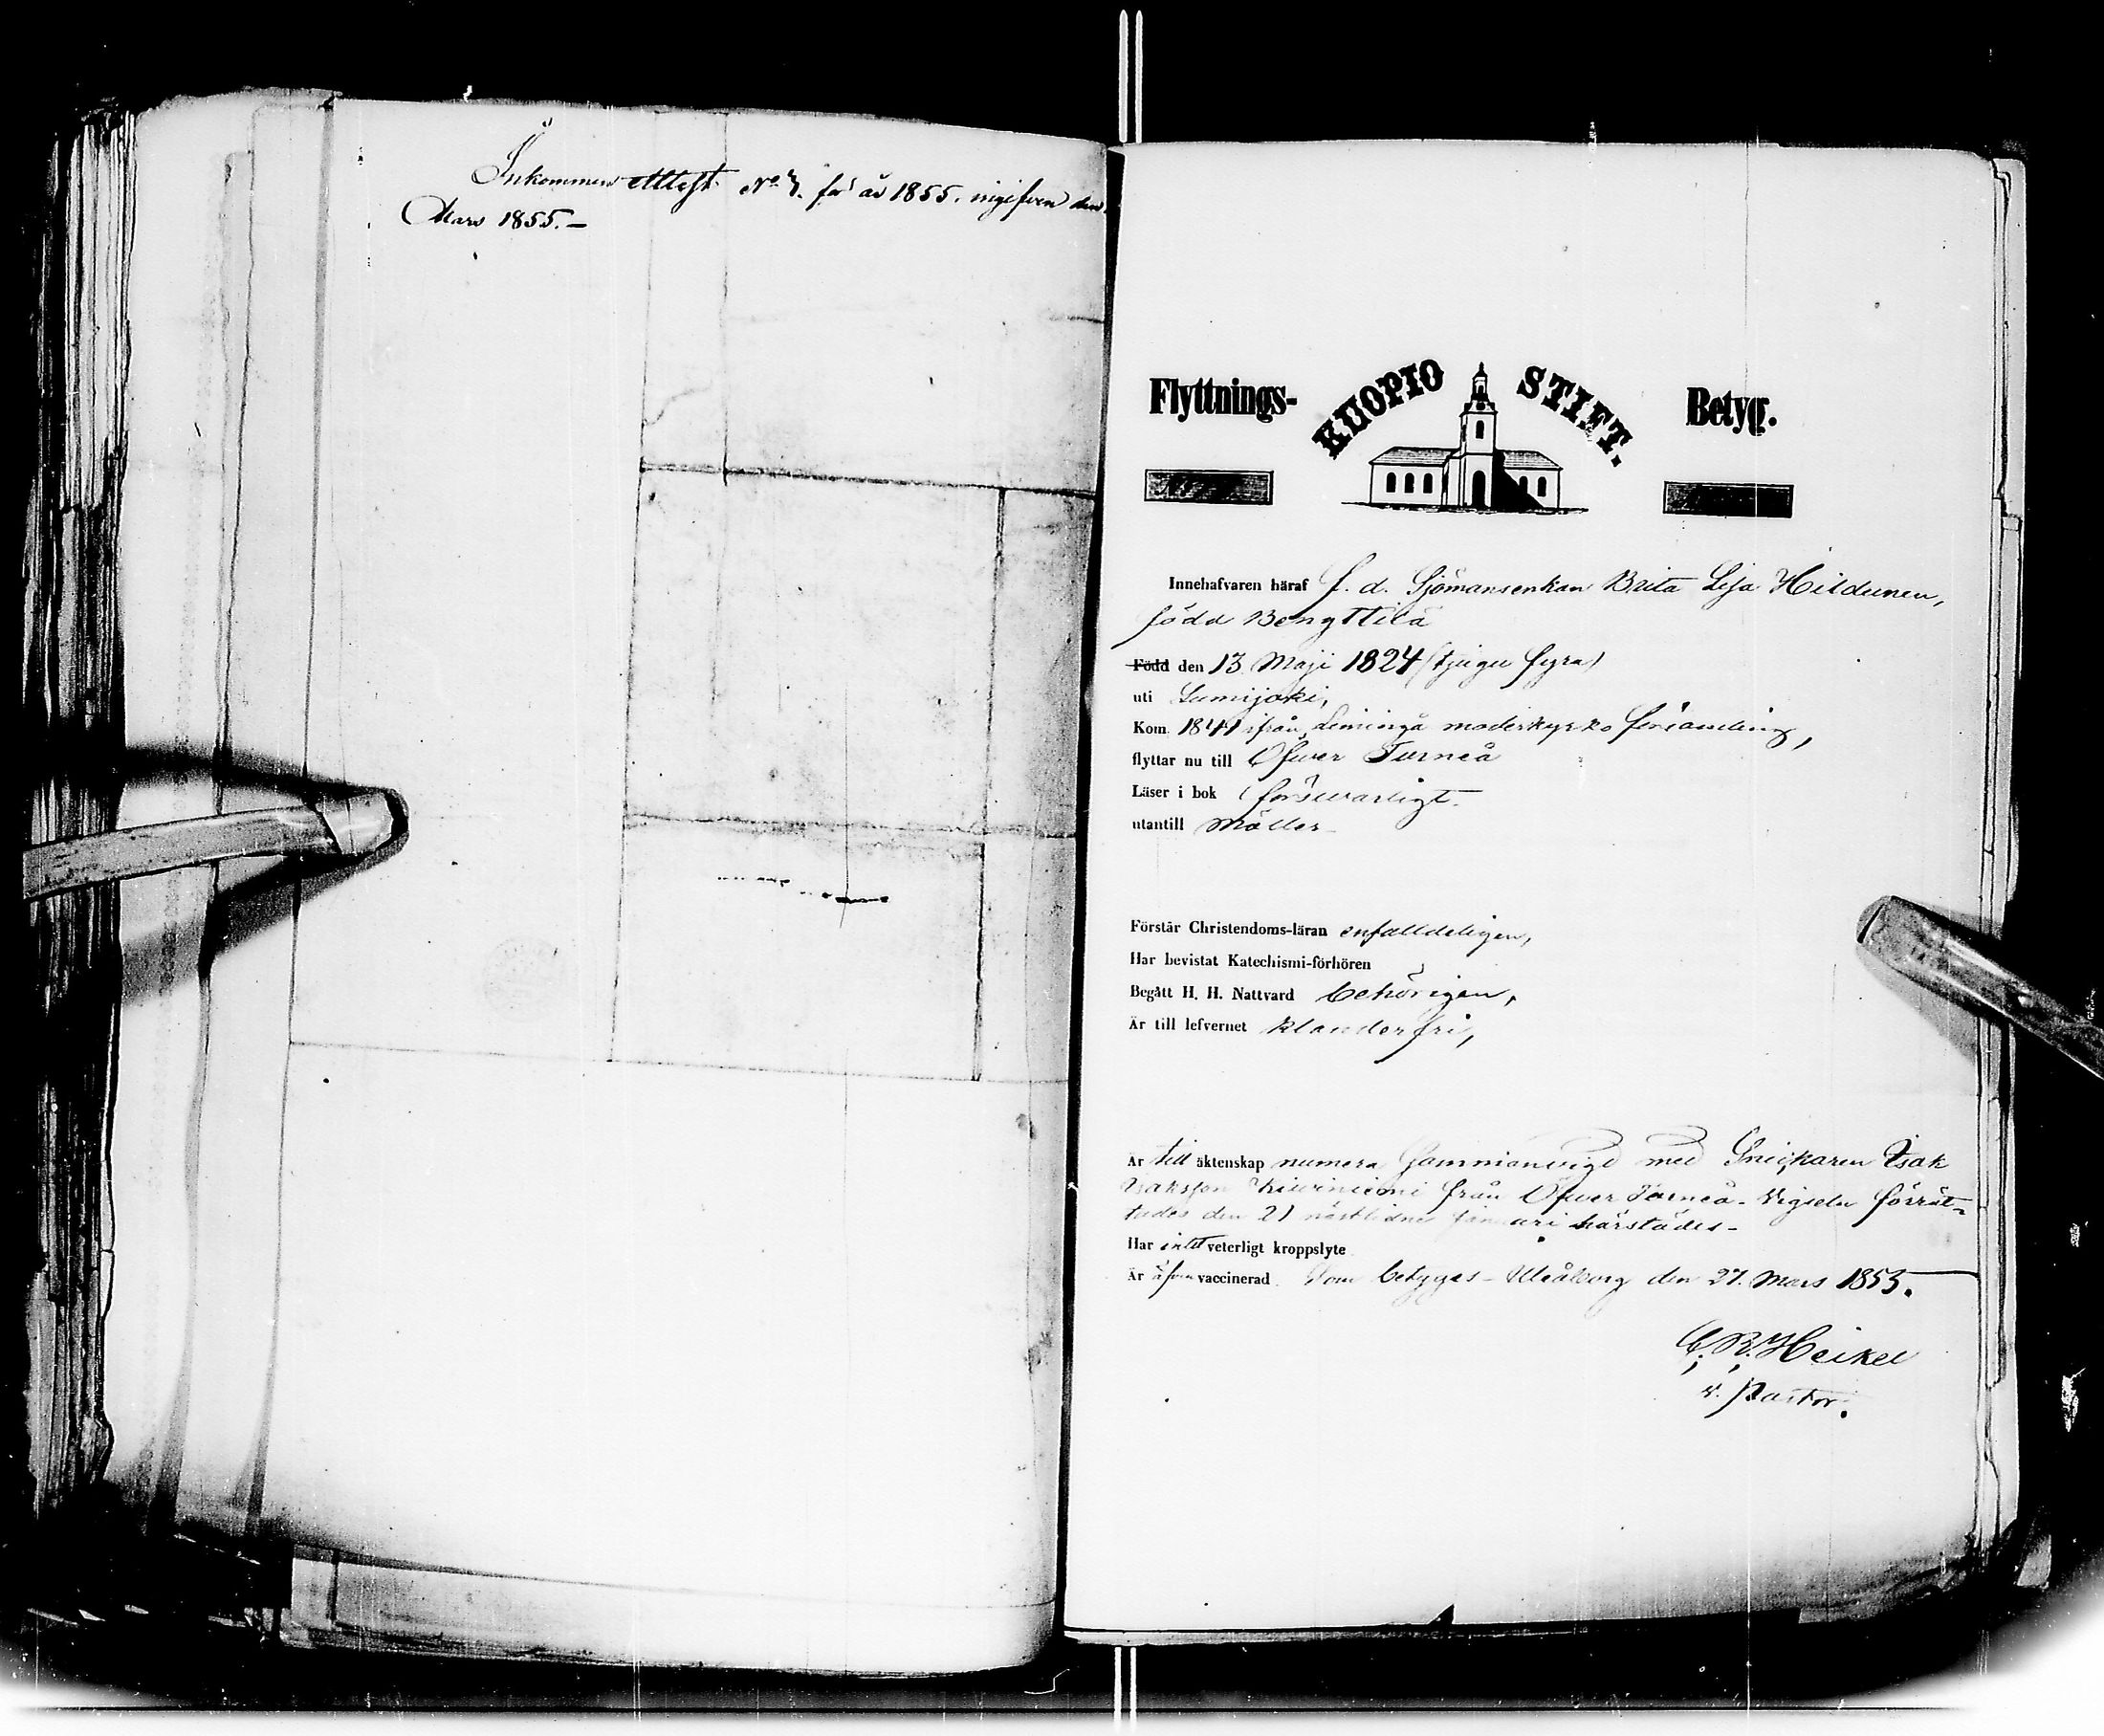 Inkommen Attest No 7. för år 1855. ingifven den
Mars 1855. –
Flyttnings- KUOPIO STIFT. Betyg.
Innehafvaren häraf f. d. Sjömansenkan Brita Lisa Hildunen,
född Bengttilä
Född den 13 Maji 1824 (tjugu fyra)
uti Lumijoki,
Kom 1841 ifrån Limingå moderkyrko församling,
flyttar nu till Öfver Torneå
Läser i bok försvarligt.
utantill
Förstår Christendoms-läran enfalldeligen,
Har bevistat Katechismi-förhören
Begått H. H. Nattvard behörigen,
Är till lefvernet klanderfri,
Är till äktenskap numera sammanvigd med Snickaren Isak
Isaksson från Öfver Torneå - Vigseln förrät-
tades den 21 nästlidne januari härstädes -
Har intet veterligt kroppslyte
Är äfven vaccinerad. Som betygas - Uleåborg den 27. Mars 1855.
C. R. Heikel
v. Pastor.